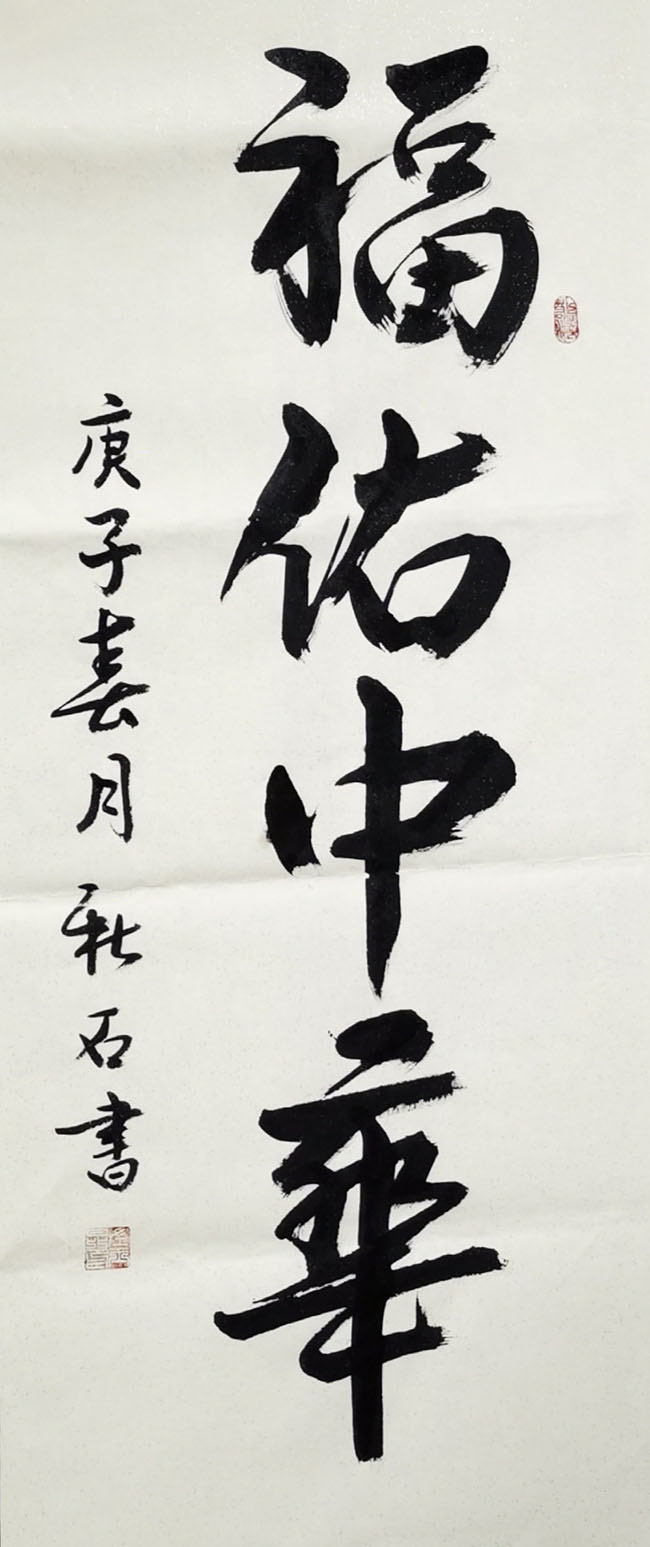 福佑中華
庚子春月秋石書